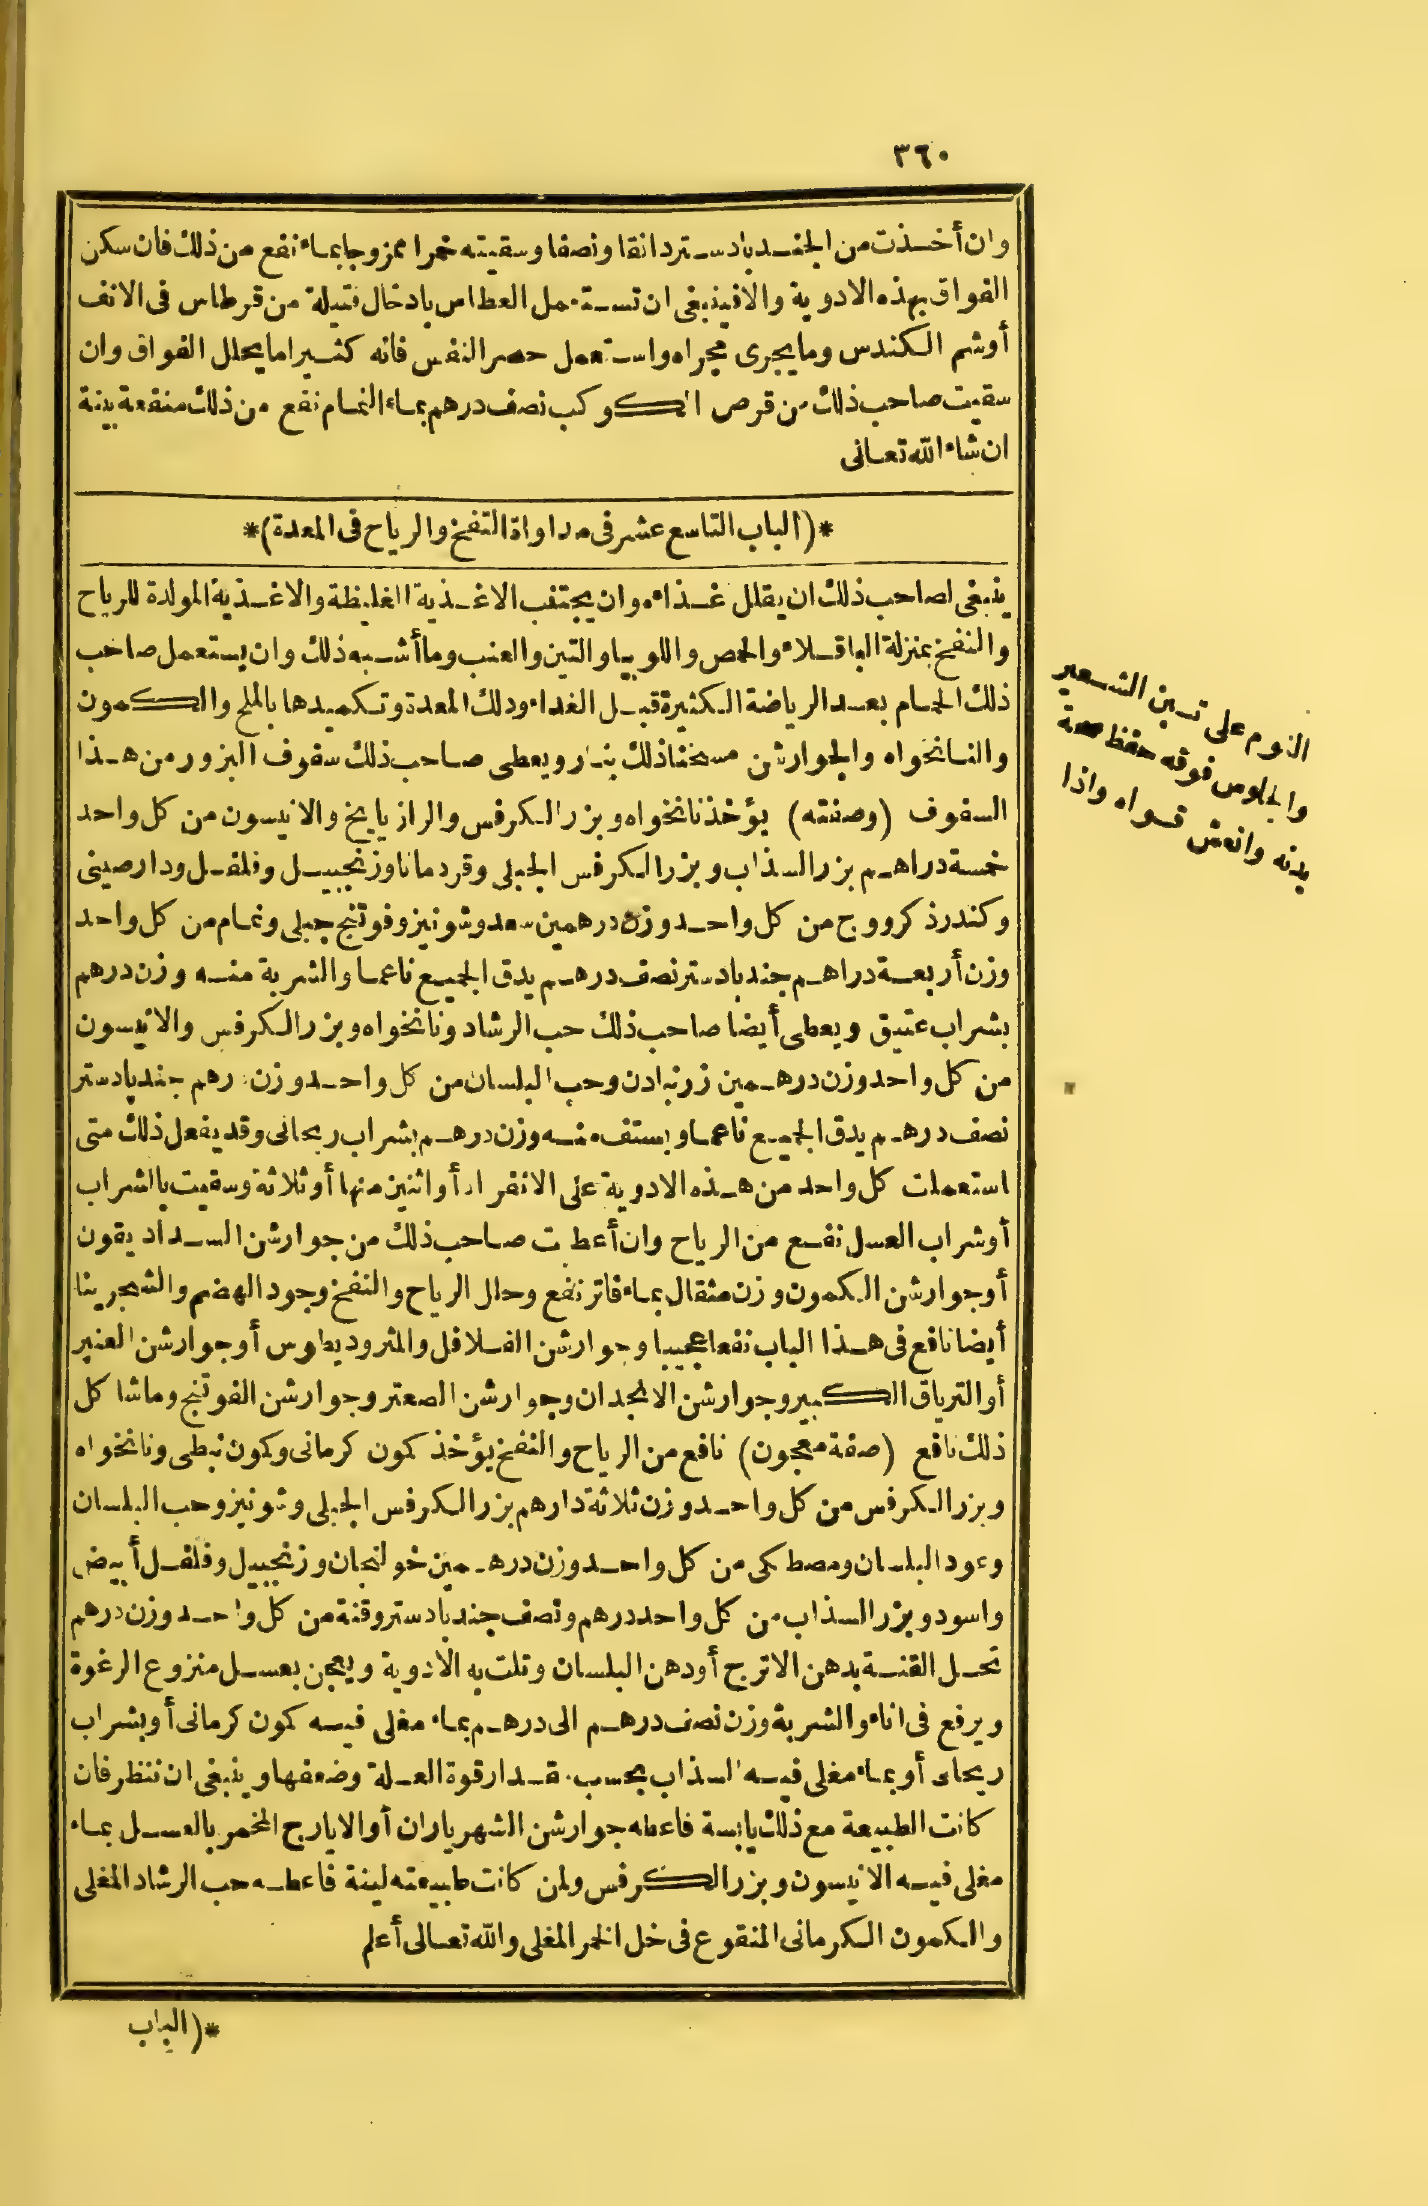 ٣٦٠
وان أخذت من الجندبادستر دانقا ونصفا وسقيته خمرا ممزوجا بماء نفع من ذلك فان سكن
الفواق بهذه الادوية والا فينبغى ان تستعمل العطاس بادخال فتيلة من قرطاس فى الانف
أوشم الكندس وما يجرى مجراه واستعمل حصر النفس فانه كثيرا ما يحلل الفواق وان
سقيت صاحب ذلك من قرص الكوكب نصف درهم بماء النمام نفع من ذلك منفعة بينة
ان شاء الله تعالى
*(الباب التاسع عشر فى مداواة النفخ والرياح فى المعدة)*
ينبغى لصاحب ذلك ان يقلل غذاءه وان يجتنب الاغذية الغليظة والاغذية المولدة للرياح
والنفخ بمنزلة الباقلاء والحمص واللوبيا والتين والعنب وما أشبه ذلك وان يستعمل صاحب
ذلك الحمام بعد الرياضة الكثيرة قبل الغداء ودلك المعدة وتكميدها بالملح والكمون
والنانخواه والجوارشن مسخنا ذلك بنار ويعطى صاحب ذلك سفوف البزور من هذا
السفوف (وصفته) يؤخذ نانخواه وبزر الكرفس والرازيانج والانيسون من كل واحد
خمسة دراهم بزر السذاب وبزر الكرفس الجبلى وقردمانا وزنجبيل وفلفل ودارصينى
وكندر ذكر ووج من كل واحد وزن درهمين سعد وشونيز وفوتنج جبلى ونمام من كل واحد
وزن أربعة دراهم جندبادستر نصف درهم يدق الجميع ناعما والشربة منه وزن درهم
بشراب عتيق ويعطى أيضا صاحب ذلك حب الرشاد ونانخواه وبزر الكرفس والانيسون
من كل واحد وزن درهمين زرنبادن وحب البلسان من كل واحد وزن درهم جندبادستر
نصف درهم يدق الجميع ناعما ويستف منه وزن درهم بشراب ريحانى وقد يفعل ذلك متى
استعملت كل واحد من هذه الادوية على الانفراد أو اثنين منها أو ثلاثة وسقيت بالشراب
أو شراب العسل نفع من الرياح وان أعطيت صاحب ذلك من جوارشن السداديقون
أو جوارشن الكمون وزن مثقال بماء فاتر نفع وحلل الرياح والنفخ وجود الهضم والشجرينا
أيضا نافع فى هذا الباب نفعا عجيبا وجوارشن الفلافل والمثروديطوس أو جوارشن العنبر
أو الترياق الكبير وجوارشن الانجدان وجوارشن الصعتر وجوارشن الفوتنج وماشا كل
ذلك نافع (صفة معجون) نافع من الرياح والنفخ يؤخذ كمون كرمانى وكمون نبطى ونانخواه
وبزر الكرفس من كل واحد وزن ثلاثة دارهم بزر الكرفس الجبلى وشونيز وحب البلسان
وعود البلسان ومصطكى من كل واحد وزن درهمين خولنجان وزنجبيل وفلفل أبيض
واسود وبزر السذاب من كل واحد درهم ونصف جندبادستر وقنة من كل واحد وزن درهم
تحل القنة بدهن الاترج أو دهن البلسان وتلت به الادوية ويعجن بعسل منزوع الرغوة
ويرفع فى اناء والشربة وزن نصف درهم الى درهم بماء مغلى فيه كمون كرمانى أو بشراب
ريحانى أو بماء مغلى فيه السذاب بحسب مقدار قوة العلة وضعفها وينبغى ان تنظر فان
كانت الطبيعة مع ذلك يابسة فاعطه جوارشن الشهرياران أو الايارج المخمر بالعسل بماء
مغلى فيه الانيسون وبزر الكرفس وان كانت طبيعته لينة فاعطه حب الرشاد المغلى
والكمون الكرمانى المنقوع فى خل الخمر المغلى والله تعالى أعلم
*(الباب
النوم على تبن الشعير
والجلوس فوقه حفظ صحة
بدنه وانعش قواه واذا